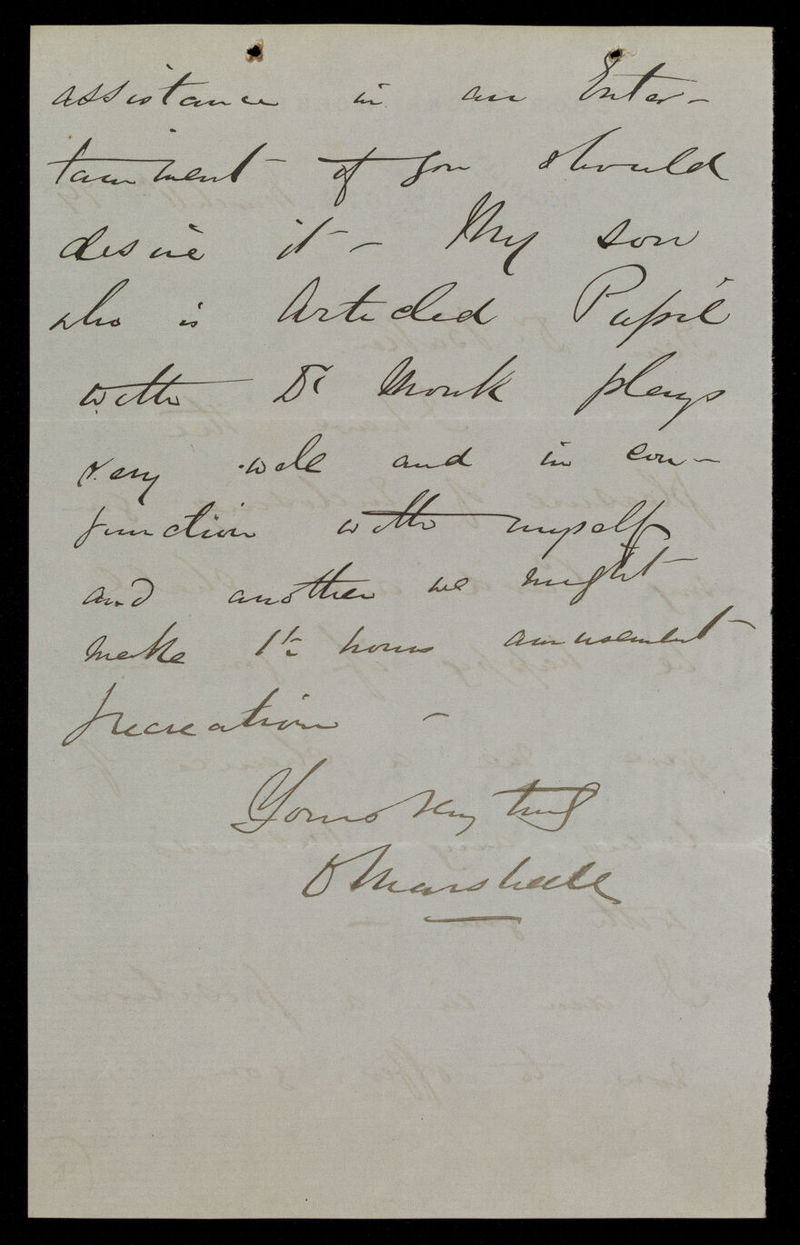 assistance in an Enter-
tainment if you should
desire it - My son
who is Articled Pupil
with Dr Monk plays
very well and in con-
junction with myself
and another we might
make 1½ hours amusement
recreation -
Yours very truly
Marshall